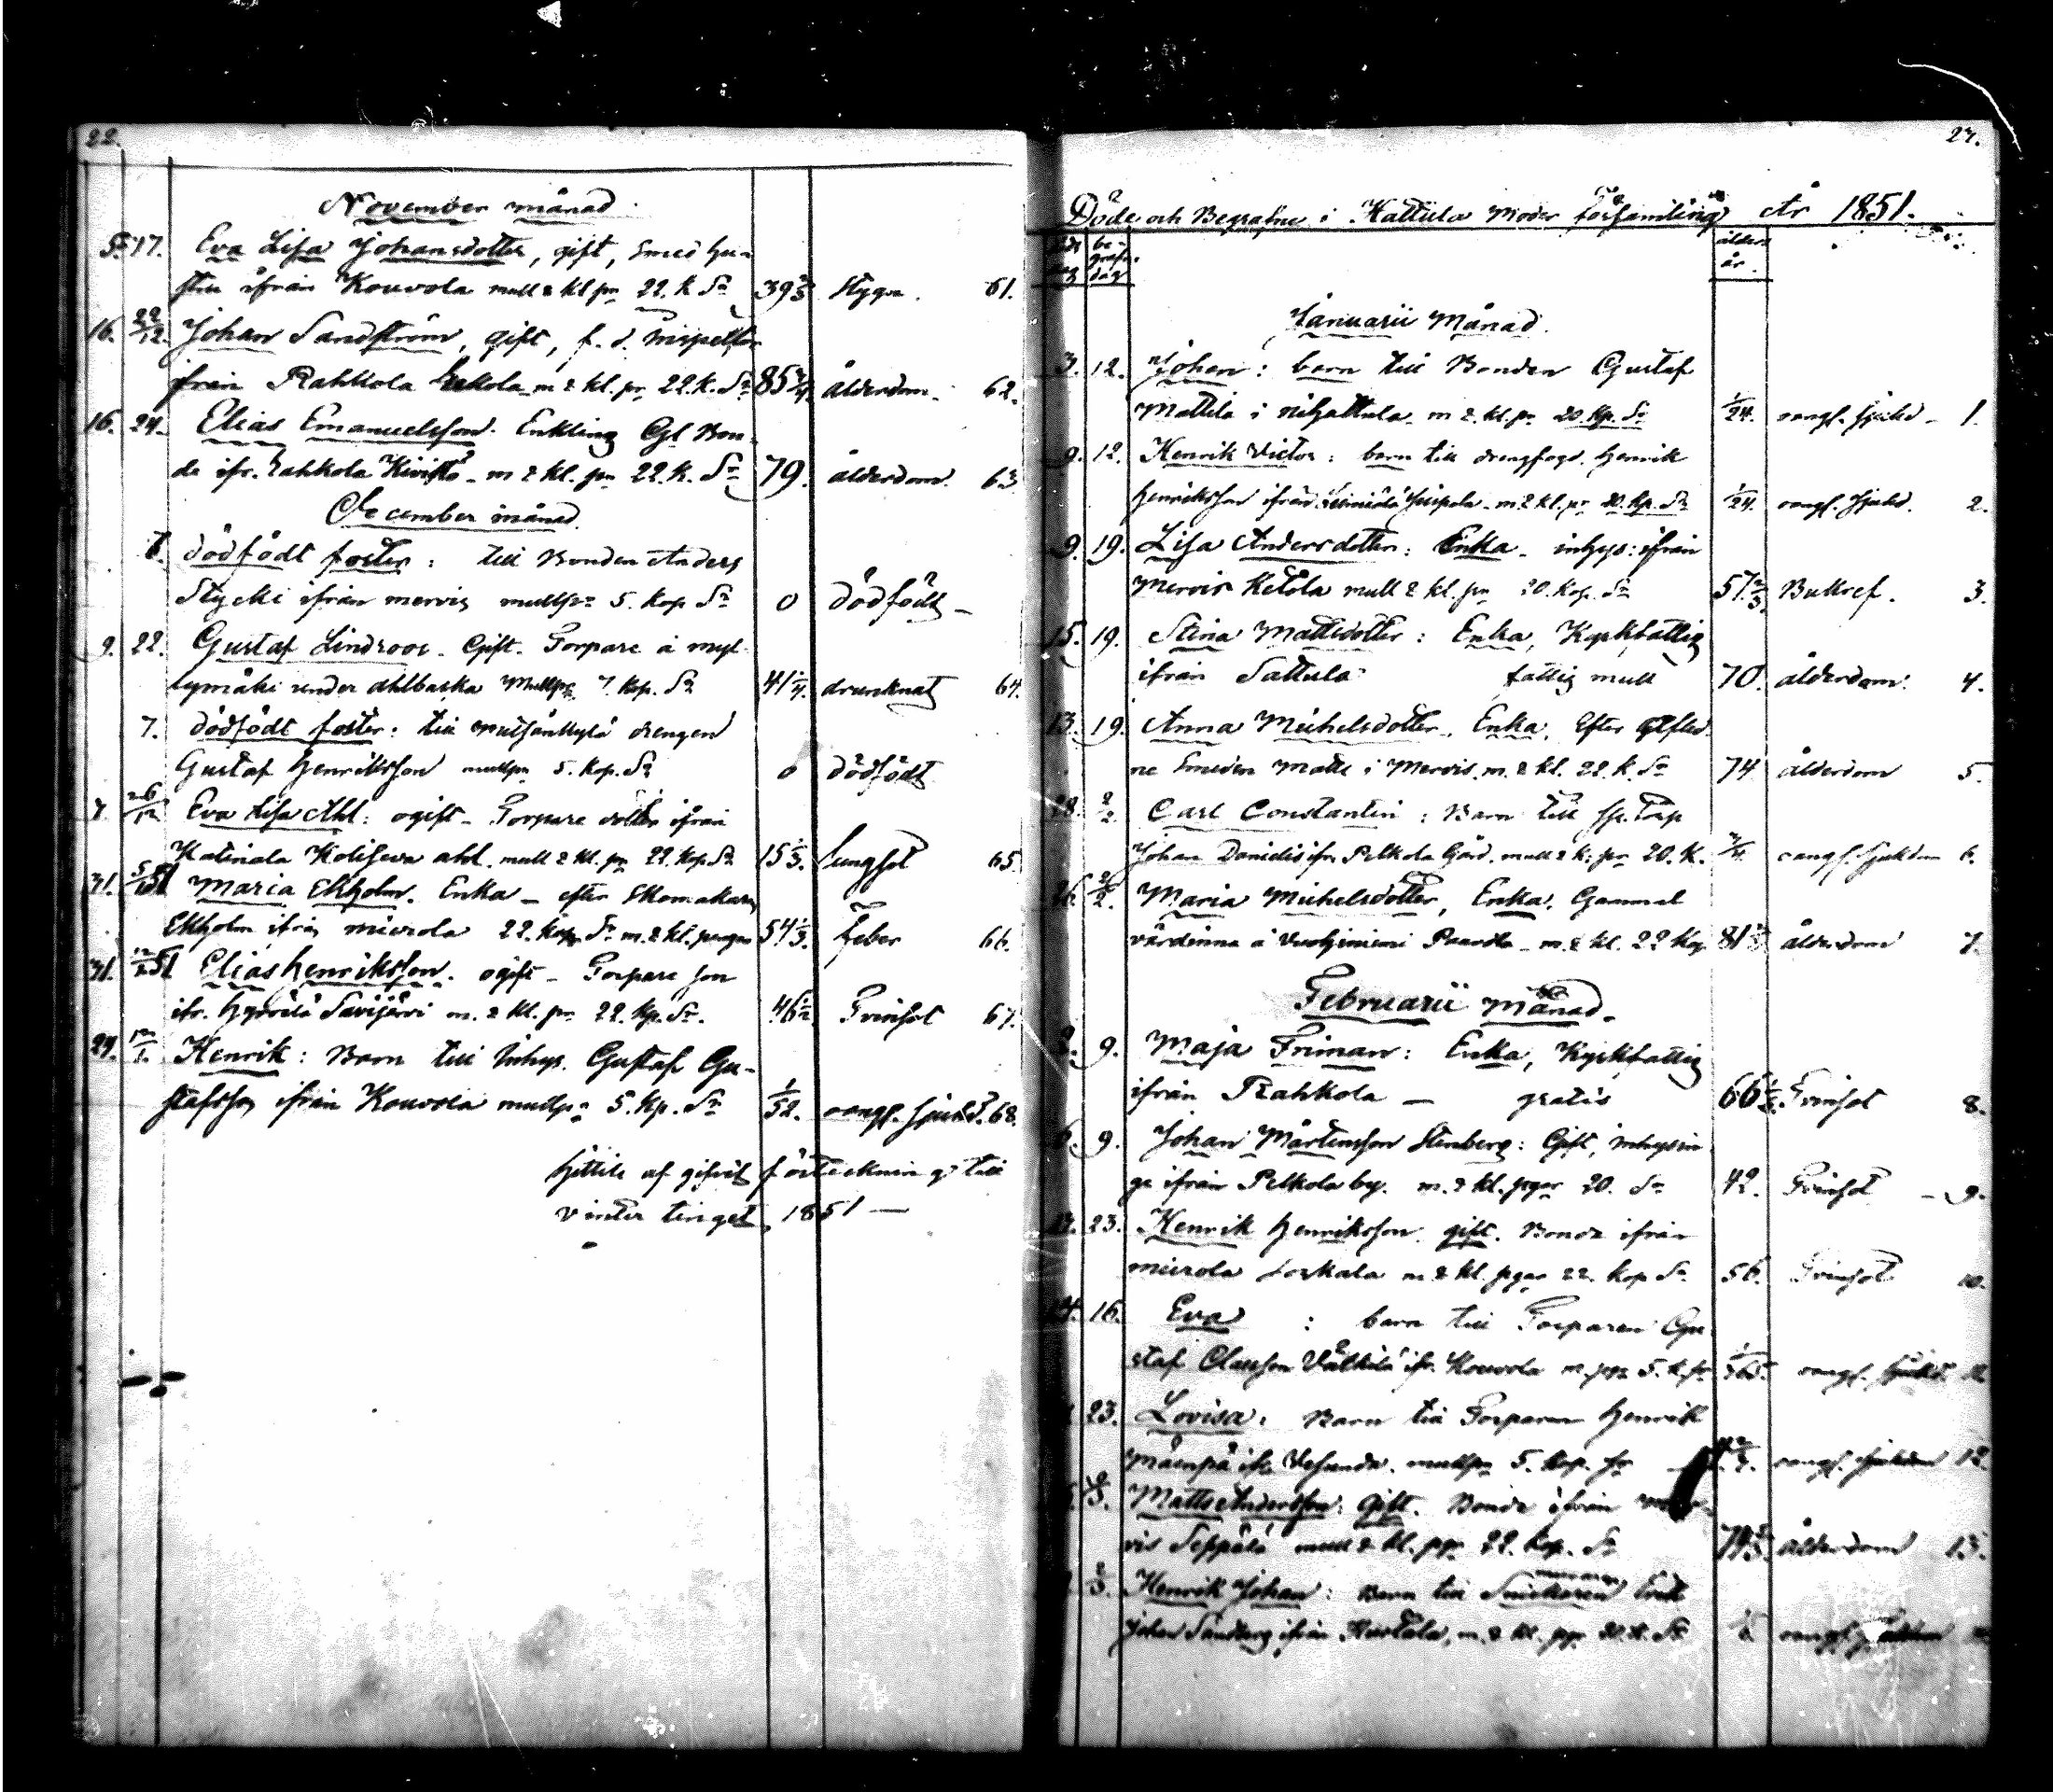 22.
November månad
5. 17. Eva Lisa Johansdotter, gift, Smed Hu-
stru ifrån Kouvola mull 2 kl pr 22. k Sr 39 61.
16. 22/12. Johan Sandström, gift, f. d. Inspektor
ifrån Rahkola m 2 kl. pr 22. k. Sr 85 ålderdom. 62.
16. 24. Elias Emanuelsson. Enkling Gl Bon-
de ifr. Rahkola Kivistö m 2 kl. pr 22. k. Sr 79. ålderdom. 63
December månad.
dödfödt foster: till Bonden Anders
Stycki ifrån mervis mullpr 5. kop Sr 0 dödfödt
9. 22. Gustaf Lindroos. Gift. Torpare å myl-
lymäki under Ahlbacka Mullpr 7. kop. Sr 41 1/4. drunknat 64.
7. dödfödt foster: till drengen
Gustaf Henriksson mullpr 5. kop. Sr 0 dödfödt
7. 26/12 Eva Lisa Ahl: ogift - Torpare dotter ifrån
Katinala ahl. mull 2 kl. pr 22. kop Sr 15 1/3. lungsot 65.
31. Maria Ekholm. Enka - efter Skomakaren
Ekholm ifrån mierola 22. kop Sr m. 2 kl. 54 1/3. feber 66.
31. Elias Henriksson. ogift - Torpare son
ifr. Hyrvälä Savijärvi m. 2 kl. pr 22. kp. Sr. 46 1/2. Tvinsot 67.
29. 12/1. Henrik: Barn till Inhys. Gustaf Gu-
stafsson ifrån Kouvola mullpr 5. kp. Sr 1/52. oangf. sjukd. 68.
hittils af gifvit förteckning till
vinter tinget 1851 —
23.
Döde och Begrafne i Hattula Moder församling År 1851.
be-
grafn.
dag
ålder
år.
Januarii Månad.
3. 12. Johan: barn till Bonden Gustaf
Mattila i Nihattula m 2. kl. pr 20 kp. Sr 1/24. oangf. sjukd 1.
9. 12. Henrik Victor: barn till drengfogd. Henrik
Henriksson ifrån m. 2 kl. pr 20. kp. Sr 1/24. oangf. sjukd. 2.
9. 19. Lisa Andersdotter: Enka - inhys: ifrån
Mervis Ketola mull 2 kl. pr 20. kop. Sr 57 2/3. Bukref. 3.
15. 19. Stina Mattsdotter: Enka, Kyrkfattig
ifrån Sattula fattig mull 70. ålderdom. 4.
13. 19. Anna Michelsdotter. Enka. Efter afled-
ne Smeden Matts i Mervis. m. 2 kl. 22. k. Sr 74 ålderdom 5.
28. 2/2. Carl Constantin: Barn till sp. Torp
Johan Danielss ifr. Pelkola Gård. mull 2 k. pr 20. K. 3/4. oangf. sjukdm 6.
26. 2/2. Maria Michelsdotter, Enka. Gammal
värdinna å Vuohiniemi Paavola - m. 2 kl. 22 Kop 81 ålderdom 7.
Februarii Månad.
9. Maja Friman: Enka, Kyrkfattig
ifrån Rahkola — gratis 66 Tvinsot 8.
6. 9. Johan Mårtensson Stenberg: Gift, inhysin-
ge ifrån Pelkola by. m. 2 kl. 20. Sr 42. Tvinsot 9.
23. Henrik Henriksson. gift. Bonde ifrån
mierola m 2 kl. 22. kop Sr 56. Tvinsot 10.
14. 16. Eva : barn till Torparen Gu-
staf Claesson ifr. Kouvola m. pr 5. k. sr 1/365. oangf. sjukd. 11.
23. Lovisa: Barn till Torparen Henrik
Mäenpä ifr. Vesunda. mullpr 5. kop. sr oangf. sjukdm 12.
Matts Andersson: gift. Bonde ifrån mer-
vis Seppälä mull 2 kl. pr 22. kop. Sr ålderdom 13.
2/3. Henrik Johan: Barn till Snickaren
Johan Sandberg ifrån m. 2 kl. pr 20. k. Sr